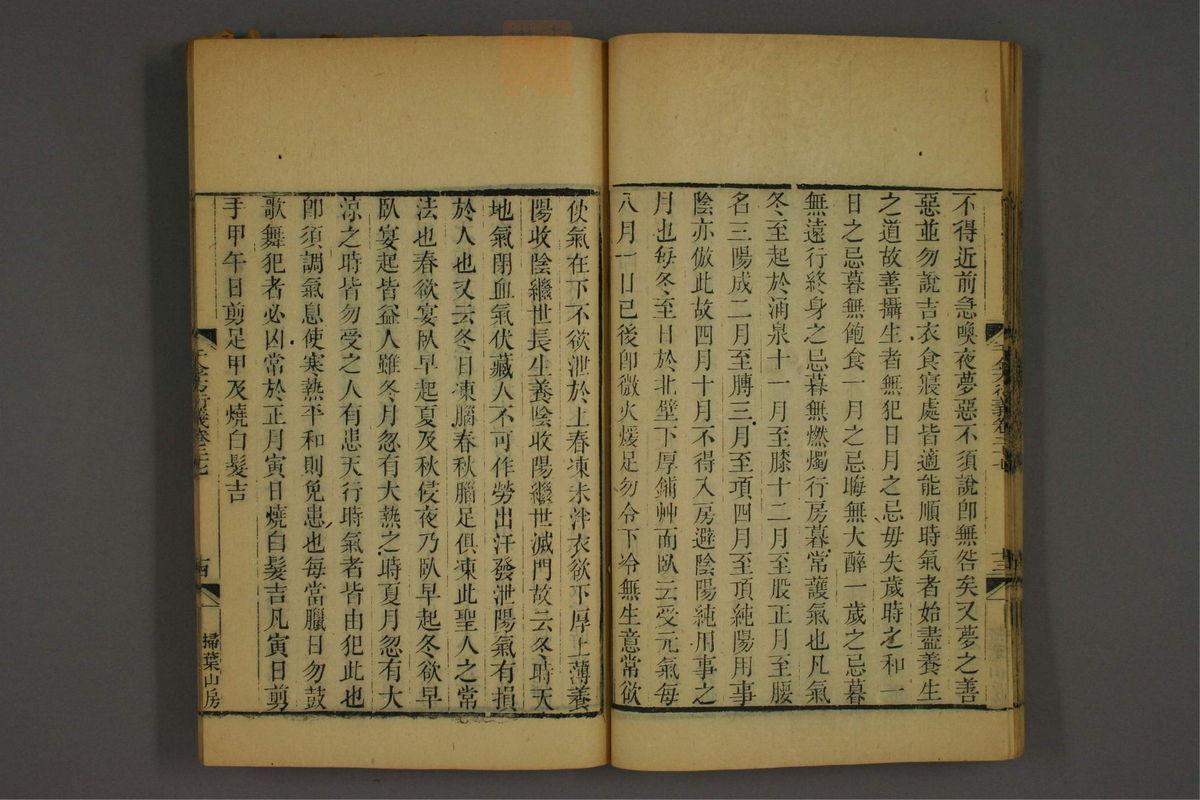 不得近前急喚夜夢惡不須說卽無咎矣又夢之善
惡並勿說吉衣食寢處皆適能順時氣者始盡養生
之道故善攝生者無犯日月之忌毋失歲時之和一
日之忌暮無飽食一月之忌晦無大醉一歲之忌暮
無遠行終身之忌暮無燃燭行房暮常護氣也凡氣
冬至起於涌泉十一月至膝十二月至股正月至腰
名三陽成二月至膊三月至項四月至頂純陽用事
陰亦倣此故四月十月不得入房避陰陽純用事之
月也每冬至日於北壁下厚鋪艸而臥云受元氣每
八月一日已後卽微火煖足勿令下冷無生意常欲
使氣在下不欲泄於上春凍未泮衣欲下厚上薄養
陽收陰繼世長生養陰收陽繼世滅門故云冬時天
地氣閉血氣伏藏人不可作勞出汗發泄陽氣有損
於人也又云冬日凍腦春秋腦足俱凍此聖人之常
法也春欲宴臥早起夏及秋侵夜乃臥早起冬欲早
臥宴起皆益人雖冬月忽有大熱之時夏月忽有大
涼之時皆勿受之人有患天行時氣者皆由犯此也
卽須調氣息使寒熱平和則免患也每當臘日勿鼓
歌舞犯者必凶常於正月寅日燒白髮吉凡寅日剪
手甲午日剪足甲及燒白髮吉
千金方衍義卷二十七
十四
掃葉山房